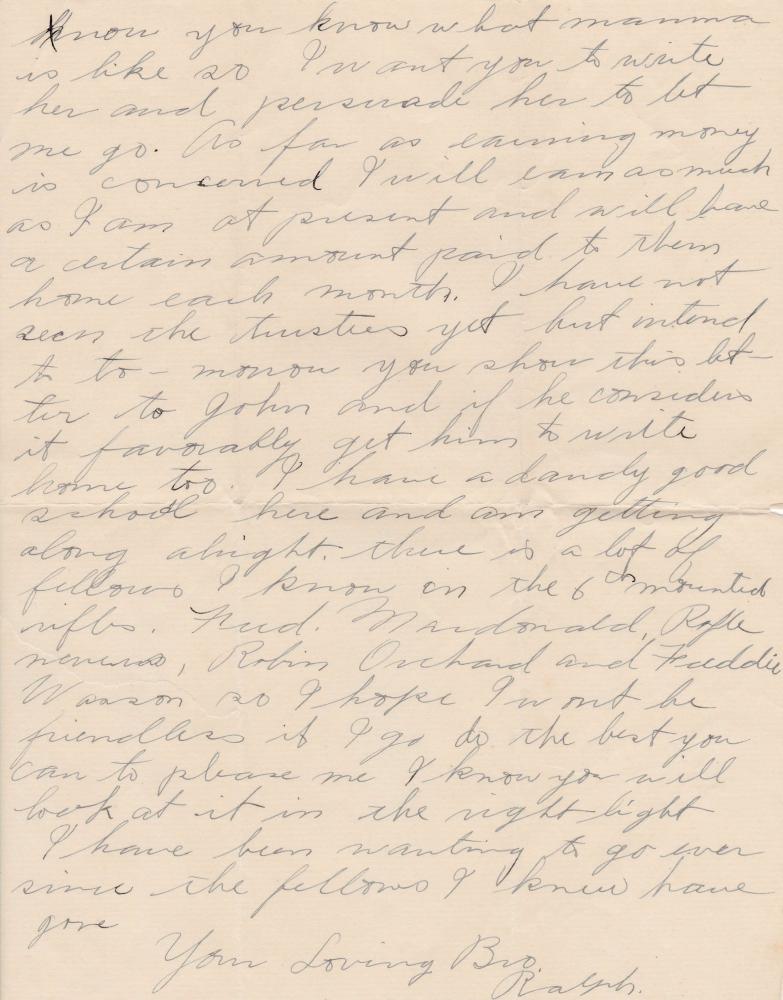 know you know what mamma
is like so I want you to write
her and persuade her to let
me go. As far as earning money
is concerned I will earn as much
as I am at present and will have
a certain amount paid to them
home each month. I have not
seen the trustees yet but intend
to to-morrow you show this let-
ter to John and if he considers
it favorably get him to write
home too. I have a dandy good
school here and am getting
along alright. there is a lot of
fellows I know in the 6th mounted
rifles. Fred. Macdonald,
Robin Orchard and Freddie
Wasson so I hope I wont be
friendless if I go do the best you
can to please me I know you will
look at it in the right light
I have been wanting to go ever
since the fellows I knew have
gone
Your Loving Bro.
Ralph.